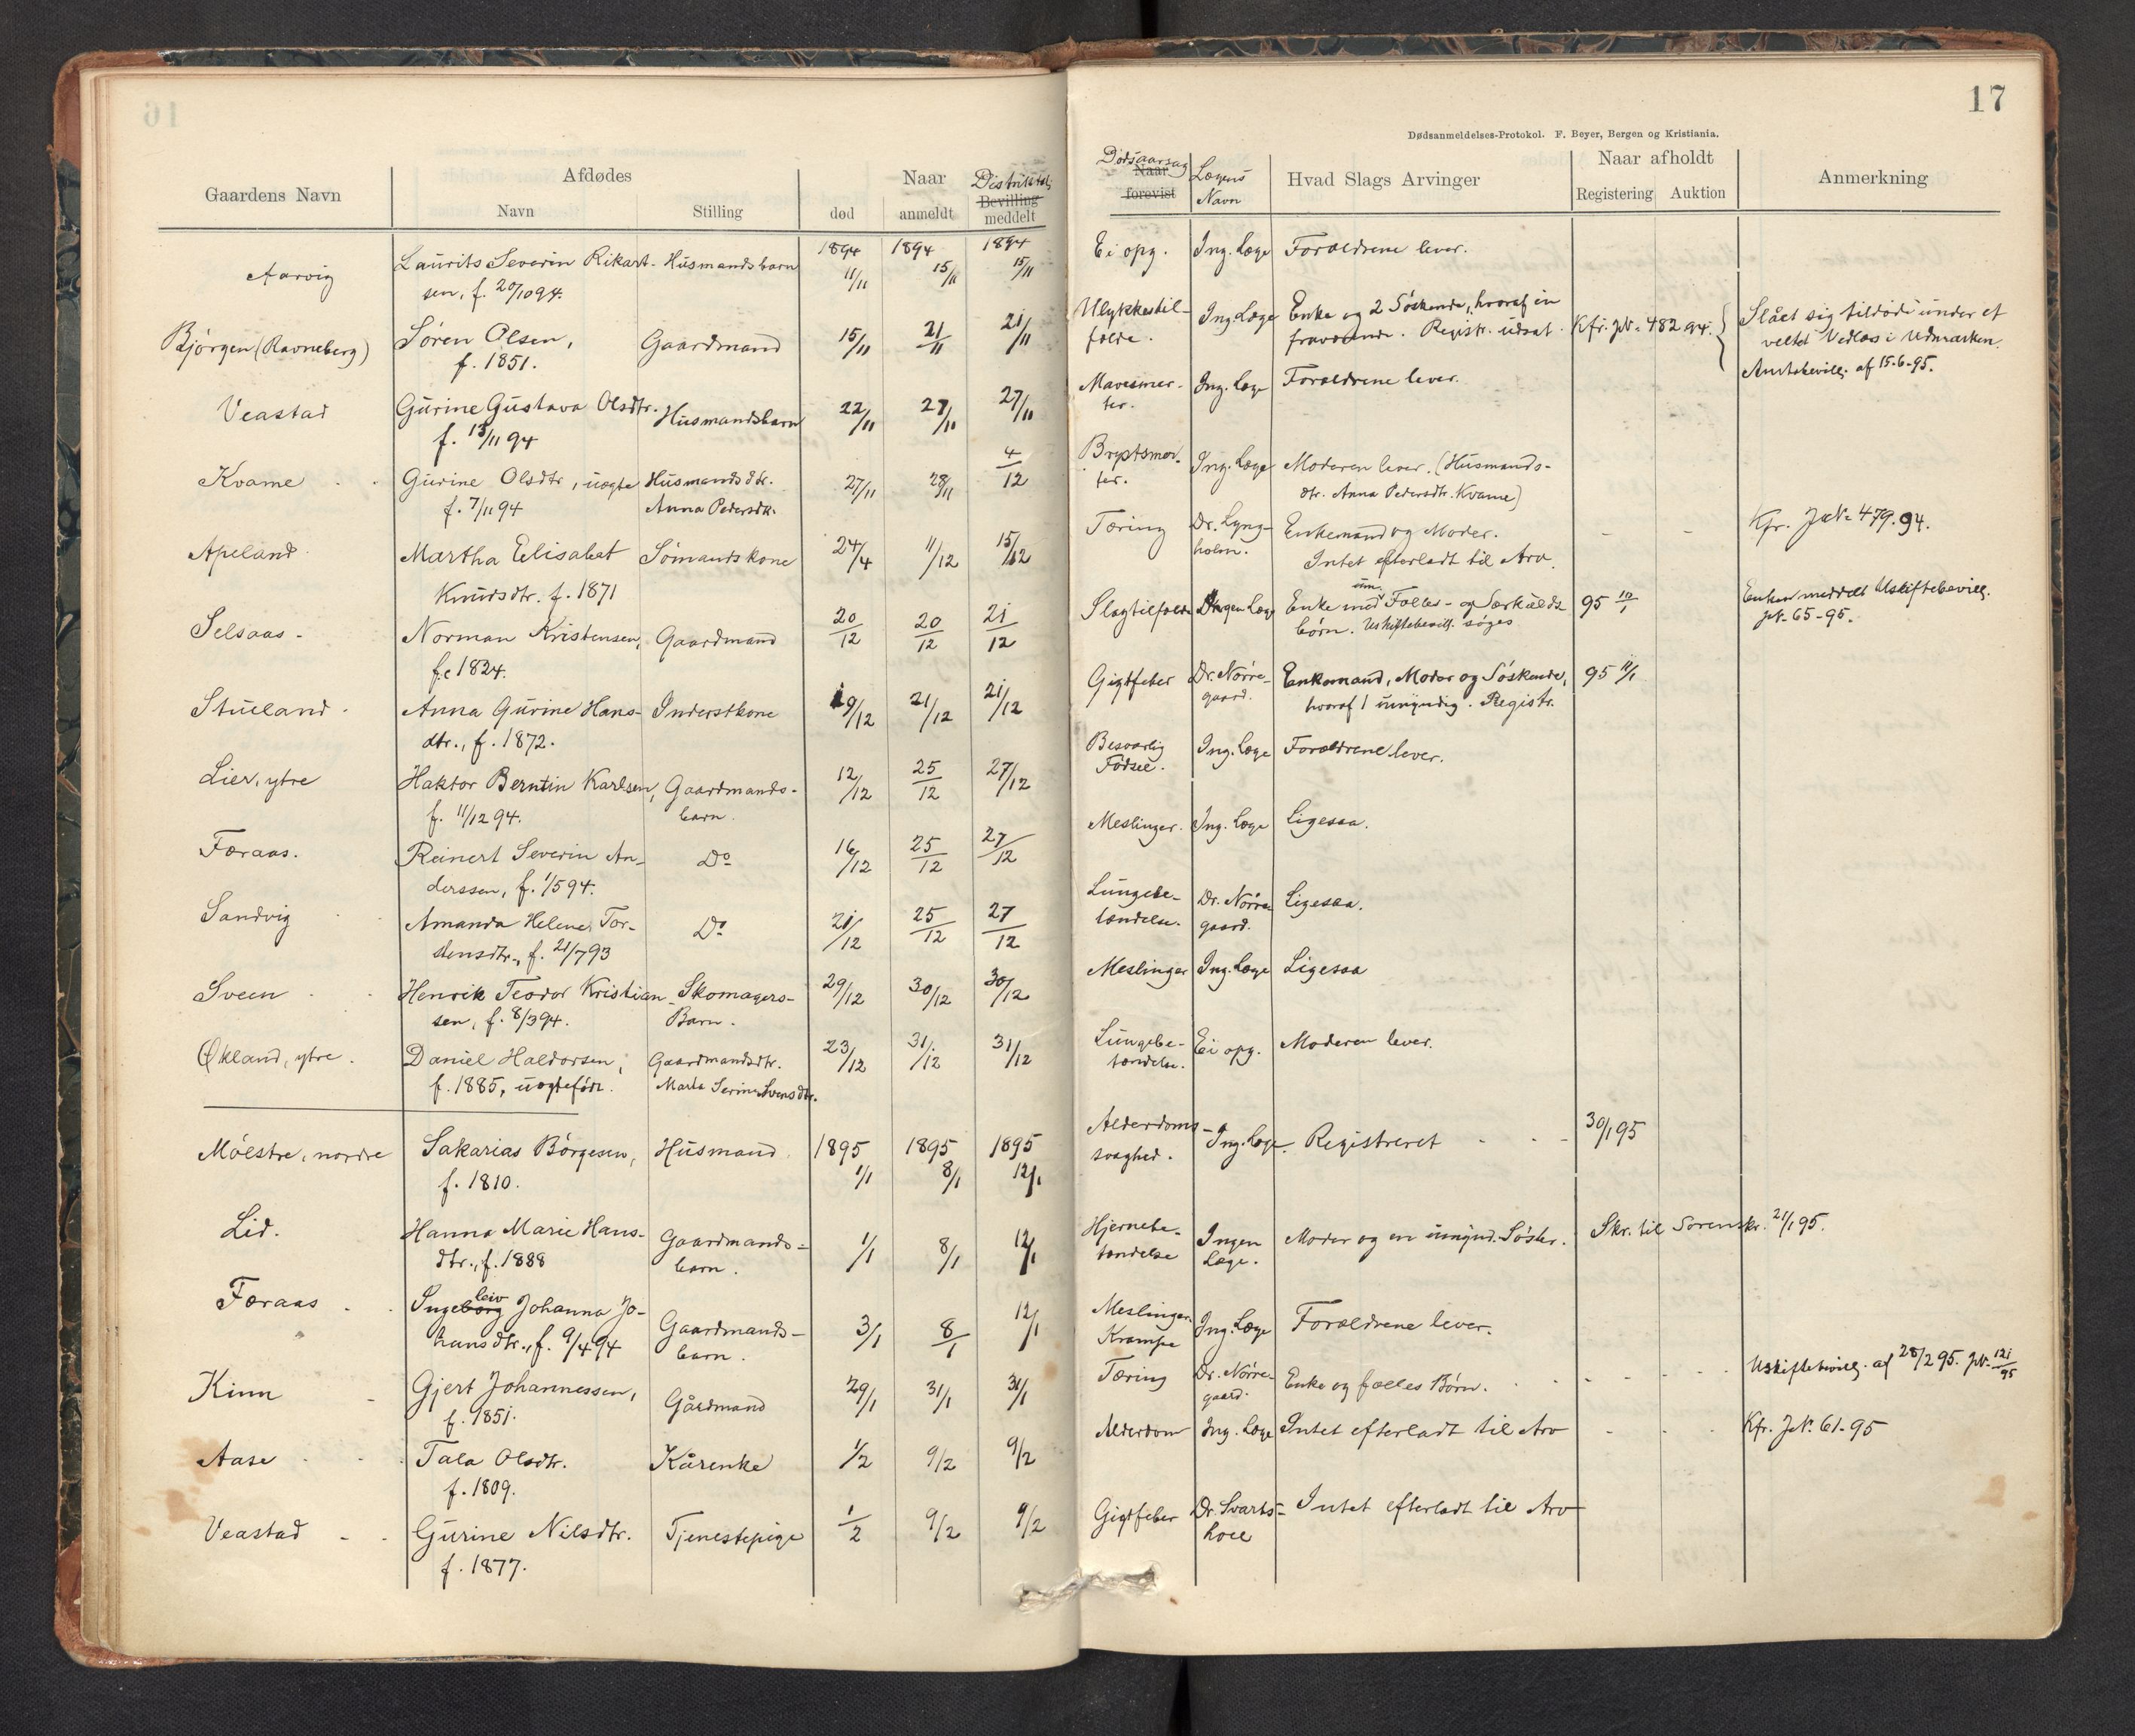 17
Dødsanmeldelses-Protokol. F. Beyer, Bergen og Kristiania.
Gaardens Navn
Afdødes
Navn
Stilling
Naar
død
anmeldt
Distriktets
Bevilling
meddelt
Aarvig
Laurits Severin Rikart- Husmandsbarn 1894 1894 1894
sen, f. 20/10 94. 11/11 15/11 15/11
Bjørgen (Ravneberg) Søren Olsen, Gaardmand 15/11 21/11 21/11
f. 1851.
Veastad Gurine Gustava Olsdtr. Husmandsbarn 22/11 27/11 27/11
f. 15/11 94
Kvame Gurine Olsdtr, uægte Husmandsdtr. 27/11 28/11 4/12
f. 7/11 94 Anna Pedersdtr.
Apeland Martha Elisabet Sømandskone 24/4 11/12 15/12
Knudsdtr. f. 1871
Selsaas Norman Kristensen, Gaardmand 20/12 20/12 21/12
f. 1824.
Stueland Anna Gurine Hans- Inderstkone 19/12 21/12 21/12
dtr., f. 1872.
Lier, ytre Haktor Berntin Karlsen, Gaardmands- 12/12 25/12 27/12
f. 11/12 94. barn.
Færaas. Reinert Severin An- Do 16/12 25/12 27/12
derssen, f. 1/5 94.
Sandvig Amanda Helene Tor- Do 21/12 25/12 27/12
stensdtr., f. 21/7 93
Sveen Henrik Teodor Kristian- Skomagers- 29/12 30/12 30/12
sen, f. 8/3 94. Barn.
Økland, ytre. Daniel Haldorsen, Gaardmandsdtr. 23/12 31/12 31/12
f. 1885, uægtefødt. Marta Serine Svensdtr.
Møestre, nordre Sakarias Børgesen, Husmand 1895 1895 1895
f. 1810. 1/1 8/1 12/1
Lid. Hanna Marie Hans- Gaardmands- 1/1 8/1 12/1
dtr., f. 1888 barn.
Færaas Ingeborg leiv Johanna Jo- Gaardmands- 3/1 8/1 12/1
hansdtr., f. 9/4 94 barn.
Kinn Gjert Johannessen, Gårdmand 29/1 31/1 31/1
f. 1851.
Aase Tala Olsdtr. Kårenke 1/2 9/2 9/2
f. 1809.
Veastad Gurine Nilsdtr. Tjenestepige 1/2 9/2 9/2
f. 1877.
Dødsaarsag
Naar
forevist
Lægens
Navn
Hvad Slags Arvinger
Naar afholdt
Registering Auktion
Anmerkning
Ei opg. Ing. Læge Forældrene lever.
Ulykkestil- Ing. Læge Enke og 2 Søskende, hvoraf en Kfr. JN. 482 94. Slået sig tildøde under et
fælde. fraværende. Registr. udsat. veltet Vedlæs i Udmarken.
Amtsbevill. af 15-6-95.
Mavesmer- Ing. Læge Forældrene lever.
ter.
Brystsmer- Ing. Læge Moderen lever. (Husmands-
ter. dtr. Anna Pedersdtr. Kvame)
Tæring Dr. Lyng- Enkemand og Moder. Kfr. JN. 479. 94.
holm. Intet efterladt til Arv.
Slagtilfælde Ingen Læge Enke med um. Fælles- og Særkulds 95 10/1 Enken meddelt Uskiftebevill.
børn. Uskiftebevill. søges JN. 65-95.
Gigtfeber Dr. Nørre- Enkemand, Moder og Søskende, 95 11/1
gaard. hvoraf 1 umyndig. Registr.
Besværlig Ing. Læge Forældrene lever.
Fødsel.
Meslinger. Ing. Læge Ligesaa.
Lungebe- Dr. Nørre- Ligesaa.
tændelse. gaard.
Meslinger Ing. Læge Ligesaa
Lungebe- Ei opg. Moderen lever.
tændelse.
Alderdoms- Ing. Læge. Registreret 30/1 95
svaghed.
Hjernebe- Ingen Moder og en umynd. Søster. Skr. til Sorenskr. 21/1 95.
tændelse Læge.
Meslinger. Ing. Læge Forældrene lever.
Krampe
Tæring Dr. Nørre- Enke og fælles Børn. Uskiftebevill. af 28/2 95. JN. 121/95
gaard.
Alderdom Ing. Læge Intet efterladt til Arv Kfr. JN. 61-95
Gigtfeber Dr. Svarts- Intet efterladt til Arv
hoel